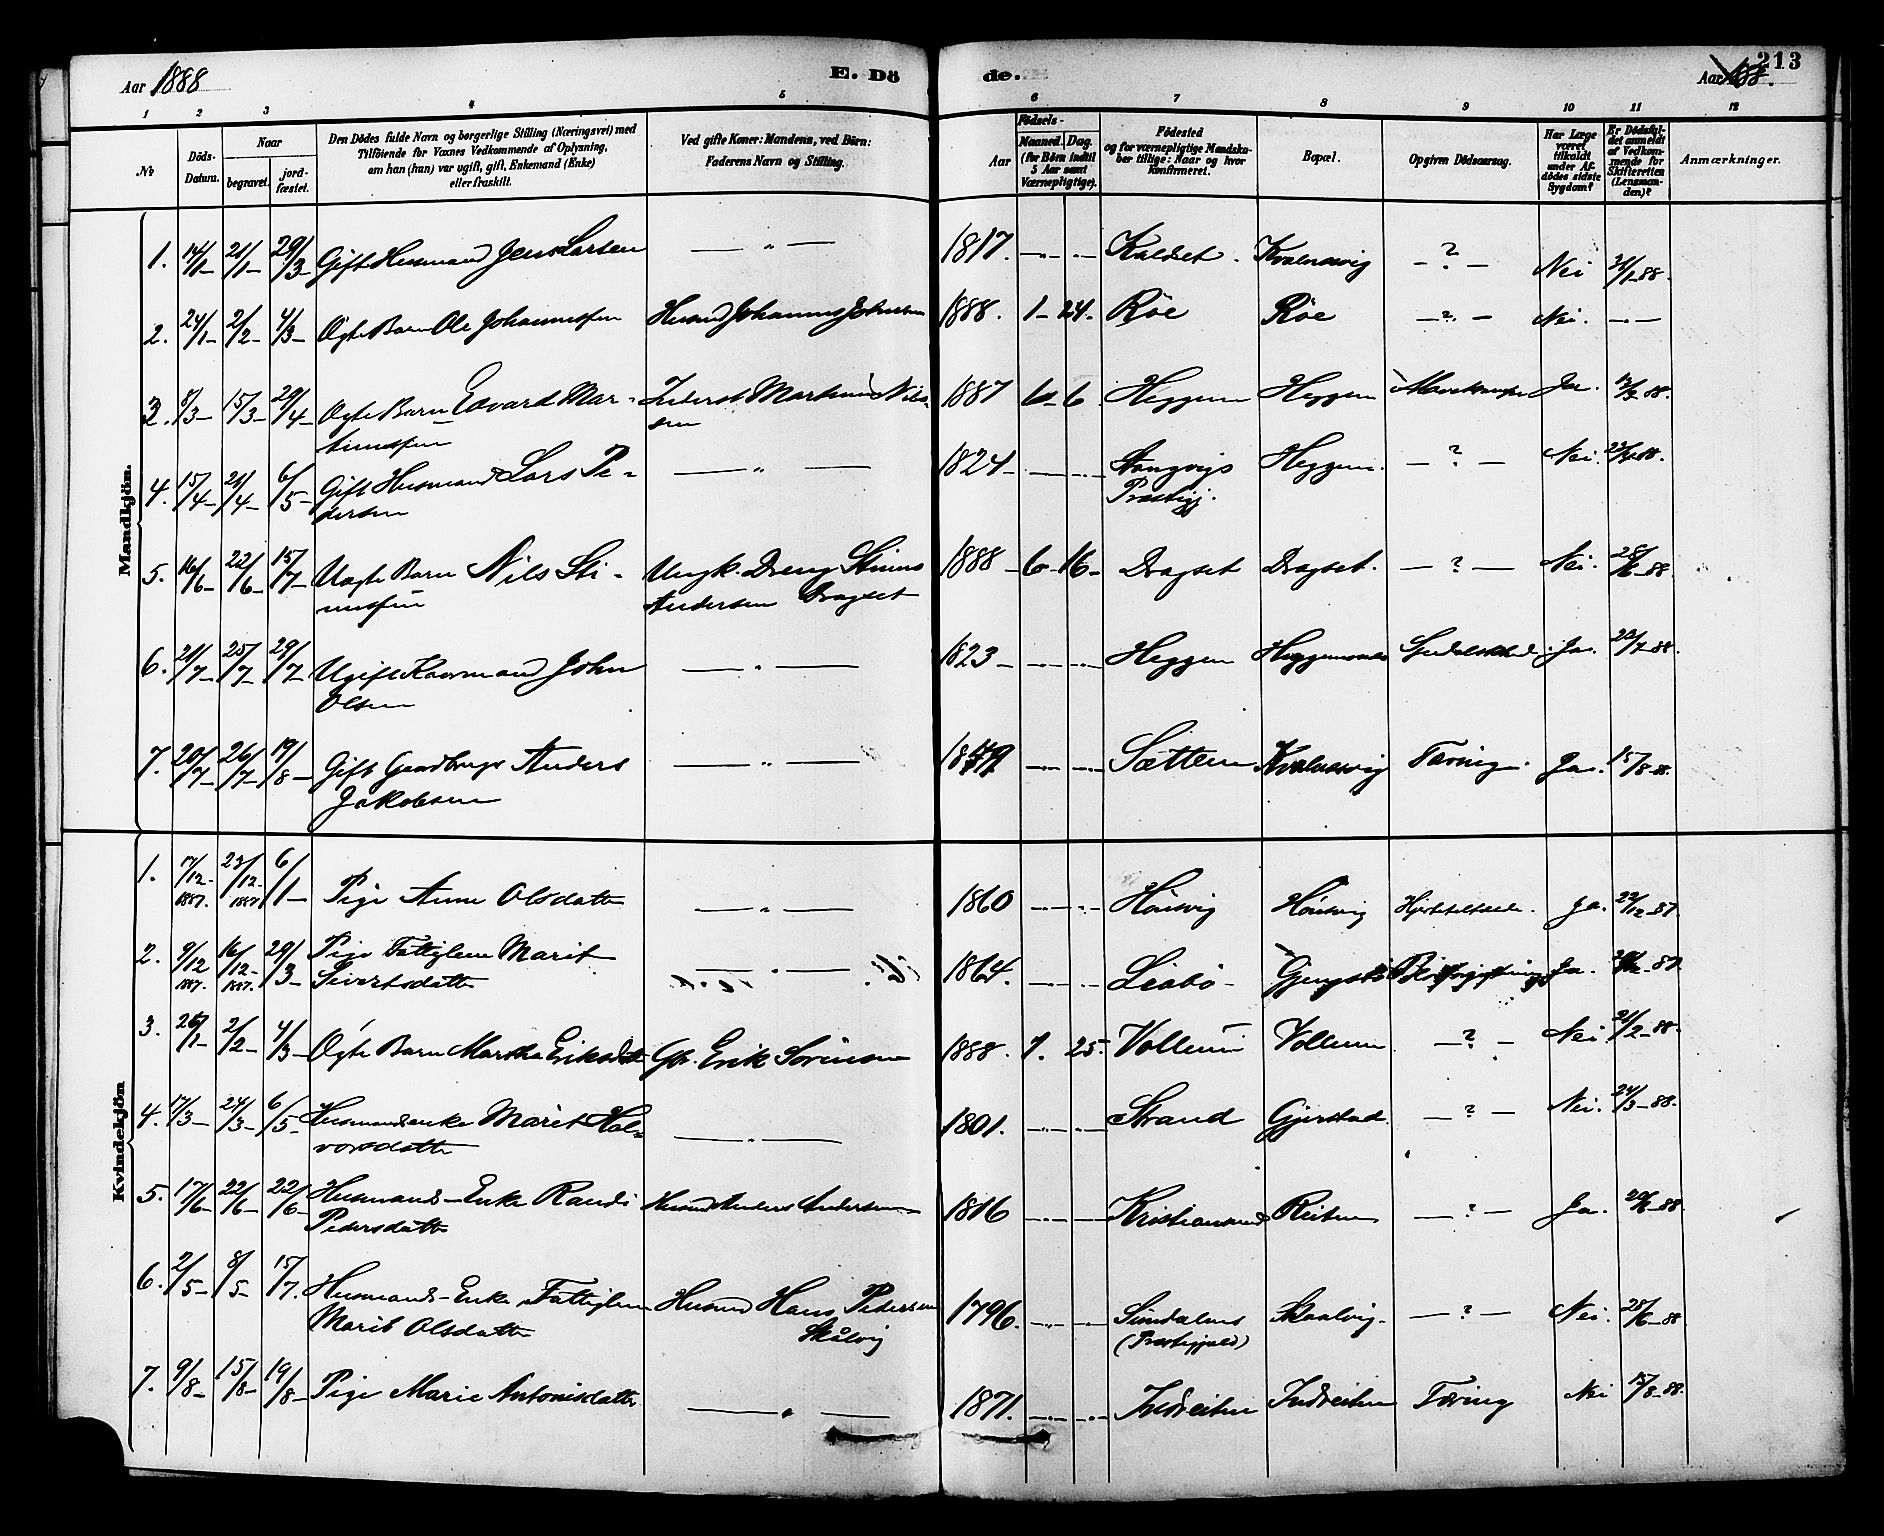 213
Aar 1888 E. Dö de. Aar 1888.
1 2 3 4 5 6 7 8 9 10 11 12
№
Döds-Datum.
Naar
begravet.
jord-fæstet.
Den Dödes fulde Navn og borgerlige Stilling (Næringsvei) med
Tilföiende for Voxnes Vedkommende af Oplysning,
om han (hun) var ugift, gift, Enkemand (Enke)
eller fraskilt.
Ved gifte Koner: Mandens, ved Börn:
Faderens Navn og Stilling.
Födsels-
Aar
Maaned. Dag.
(for Börn indtil
5 Aar samt
Værnepligtige).
Födested
og for værnepligtige Mandska-
ber tillige: Naar og hvor
konfirmeret.
Bopæl.
Opgiven Dödsaarsag.
Har Læge
været
tilkaldt
under Af-
dödes sidste
Sygdom?
Er Dödsfal-
det anmeldt
af Vedkom-
mende for
Skifteretten
(Lensman-
den)?
Anmærkninger.
Mandkjön.
1. 14/1- 21/1- 29/3- Gift Husmand Jens Larsen — „ — 1817. Kaldset. Kvalnesvig - ? - Nei 21/1-88.
2. 24/1- 2/2- 4/3- Ægte Barn Ole Johannessen Husmd Johannes Johnsen 1888. 1- 24- Röe Röe - ? - Nei. - - -
3. 8/3- 15/3- 29/4- Ægte Barn Edvard Mar- Martinus Nils- 1887 6 Heggem Heggem Ja. 88.
tinussen sen
4. 15/4- 21/4- 6/5- Gift Husmand Lars Pe- — „ — 1824- Stangvigs Heggem. - ? - Nei. 88.
dersen Præstegj.
5. 16/6- 22/6- 15/7- Uægte Barn Nils Sti- Ungk. Dreng Stinus 1888- 6- 16- Dragset Dragset. - ? - Nei. 88.
nussen Andersen Dragset
6. 21/7- 25/7- 29/7- Ugift Kaarmand John — „ — 1823- Heggem Ja. 23/7-88.
Olsen
7. 20/7- 26/7- 19/8- Gift Gaardbruger Anders — „ — Sættem Kvalnesvig Tæring. Ja. 15/8-88.
Jakobsen
Kvindekjön
1. 17/12- 1887. 23/12- 1887 6/1- Pige Anne Olsdatter — „ — 1860 Hönsvig Hönsvig Ja. 22/12-87
2. 9/12 1887. 16/12- 1887. 29/3- Pige Fattiglem Marit — „ — 1864. Liabö Ja. 87
Sivertsdatter
3. 26/1- 2/2- 4/3- Ægte Barn Martha Eriksdatter Gbr. Erik Sörensen 1888. 1. 25. Vollum Vollum - ? - Nei 21/2-88.
4. 17/3- 24/3- 6/5- Husmandsenke Marit Hal- — „ — 1801. Strand Gjerstad. - ? - Nei. 24/3-88.
vorsdatter
5. 17/6- 22/6- 22/6- Husmands-Enke Randi Husmd Anders Andersen 1816 Kristiansund Reiten - ? - Ja. 88
Pedersdatter
6. 2/5- 8/5- 15/7. Husmands-Enke, Fattiglem Husmd Hans Pedersen 1796. Sundalens Skaalvig. - ? - Nei. 88
Marit Olsdatter Skålvig (Præstegjeld)
7. 9/8- 15/8- 19/8- Pige Marie Antonisdatter — „ — 1871. Indreiten Indreiten Tæring Nei 15/8-88.